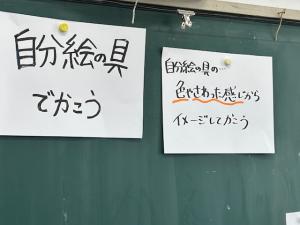 自分絵の具
でかこう
自分絵の具の…
色やさわった感じから
イメージしてかこう